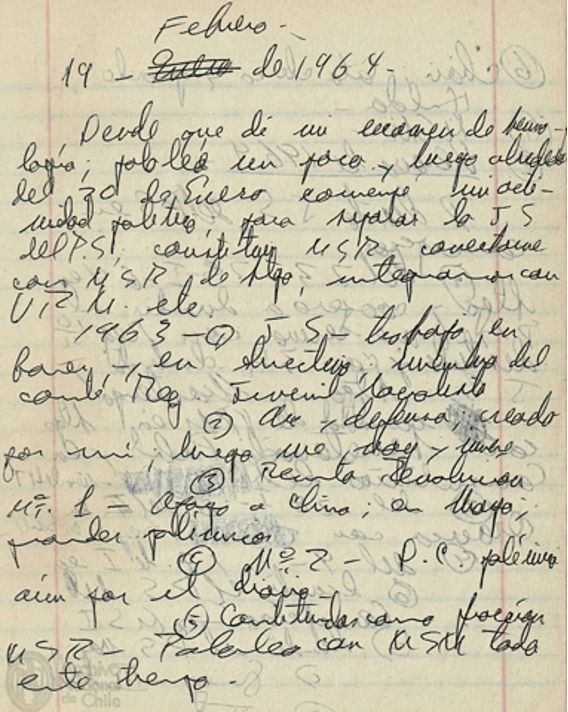 Febrero -
19 - Enero de 1964 -
Desde que dí mi examen de
, poco y luego
del 30 de Enero comencé mi acti-
vidad política, para separar la J S
del P.S, constituir M S R conectarme
con M S R de Stgo, integrarnos con
V R M. etc
1963 - ① J S - trabajo en
, en directiva, miembro del
comité Reg Juvenil
② y defensa, creado
por mí, luego me y
③ Revista Revolución
Nº 1 - apoyo a China; en Mayo;
grandes polémicas
④ Nº 2 - P.C. polémica
aún por el diario -
⑤ Constituidos como fracción
M S R - con M S M todo
este tiempo -
Archivo
Nacional
de Chile